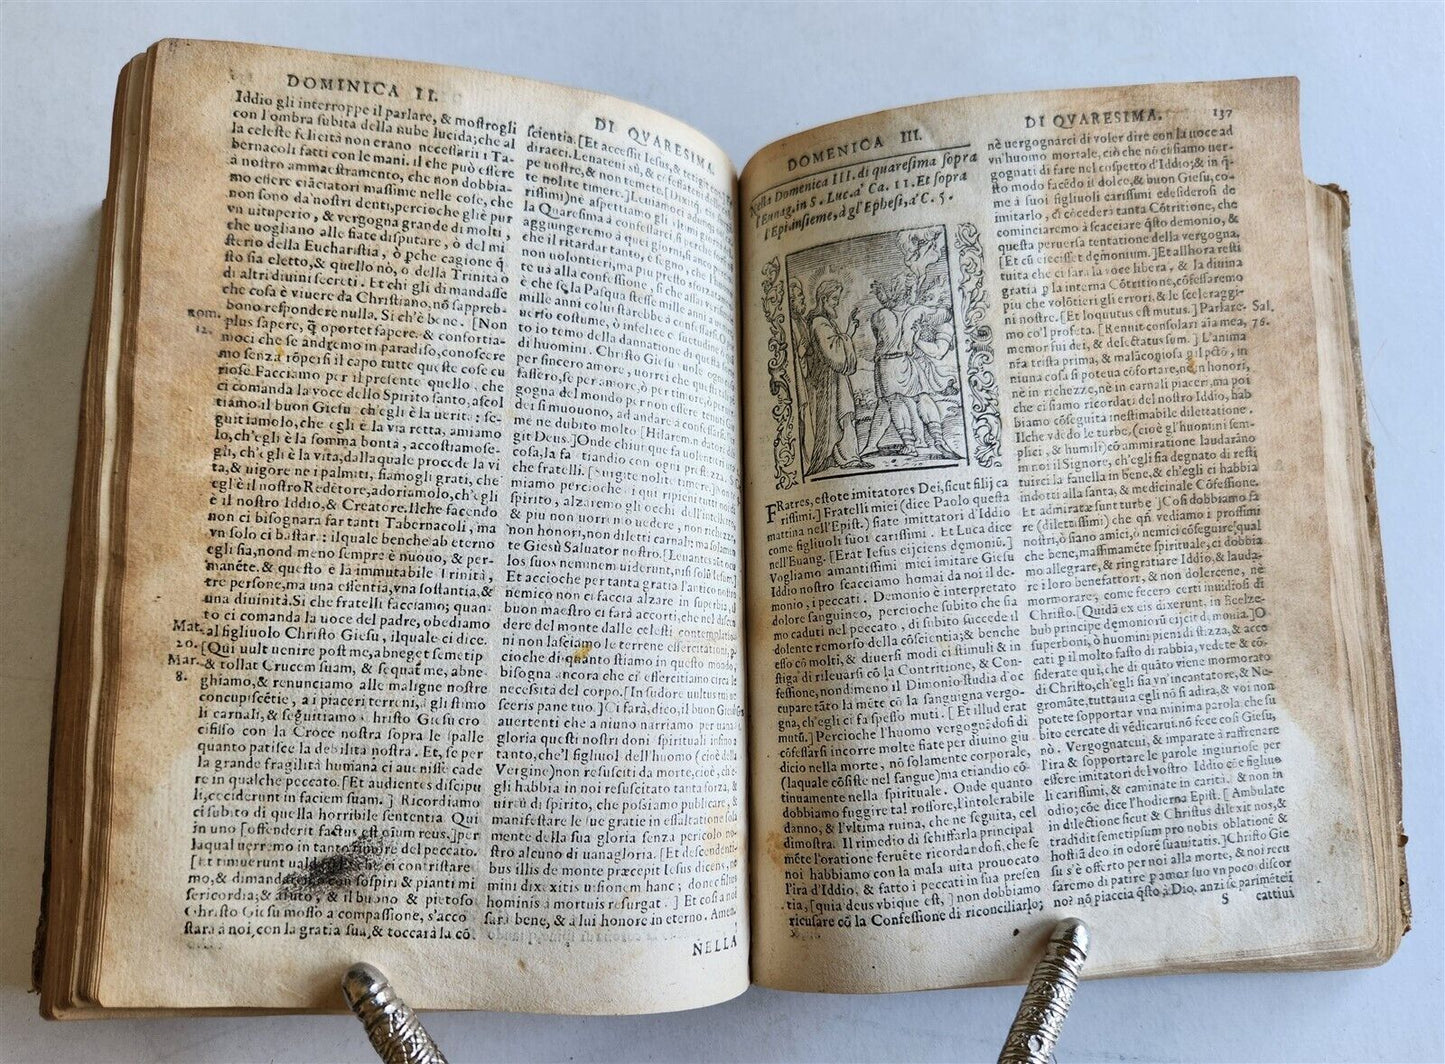 DOMINICA II.
Iddio gli interroppe il parlare, & mostrogli
con l'ombra subita della nube lucida; che al
la celeste felicità non erano necessarii i Ta-
bernacoli fatti con le mani. il che può essere
à nostro ammaestramento, che non dobbia-
mo essere ciāciatori massime nelle cose, che
non sono da nostri denti, percioche gliè pur
vn uituperio, & vergogna grande di molti,
che uogliano alle fiate disputare, ò del mi
sterio della Eucharistia, ò ꝑche cagione q̄
sto sia eletto, & quello nò, o della Trinità o
di altri diuini secreti. Et chi gli dimandasse
che cosa è viuere da Christiano, nō sapreb-
bono respondere nulla. Si ch'è bene. [Non
Rom.
12.
plus sapere, q̄ oportet sapere. & confortia-
moci che se andremo in paradiso, conoscere
mo senza rōpersi il capo tutte queste cose cu
riose. Facciamo per il presente quello, che
ci comanda la voce dello Spirito santo, ascol
tiamo il buon Giesu ch'egli è la uerità; se-
guitiamolo, che egli è la via retta, amiamo
lo, ch'egli è la somma bonta, accostiamose-
gli, ch'egli è la vita, dalla quale procede la vi
ta, & uigore ne i palmiti, siamogli grati, che
egl'è il nostro Redētore, adoriamolo, ch'egli
è il nostro Iddio, & Creatore. Ilche facendo
non ci bisognara far tanti Tabernacoli, ma
vn solo ci bastara: ilquale benche ab eterno
egli sia, nondimeno sempre è nuouo, & per-
manēte. & questo è la immutabile Trinità,
tre persone, ma una essentia, vna sostantia, &
una diuinità. Si che fratelli facciamo; quan-
to ci comanda la uoce del padre, obediamo
Mat.
al figliuolo Christo Giesu, ilquale ci dice.
20.
[Qui uult uenire post me, abneget semetip
Mar.
& tollat Crucem suam, & sequat̄ me, abne-
8.
ghiamo, & renunciamo alle maligne nostre
concupiscētie, a i piaceri terreni, à gli stimo
li carnali, & seguitiamo Christo Giesu cro
cifisso con la Croce nostra sopra le spalle
quanto patisce la debilità nostra. Et, se per
la grande fragilità humana ci auenisse cade
re in qualche peccato. [Et audientes discipu
li, ceciderunt in faciem suam.] Ricordiamo
ci subito di quella horribile sententia Qui
in uno [offenderit factus est oium reus,] per
laqual uerremo in tanto timore del peccato.
[Et timuerunt ualde.] che ci contristare
mo, & dimandaremo con sospiri & pianti mi
sericordia, & aiuto, & il buono & pietoso
Christo Giesu mosso a compassione, s'acco
stara à noi, con la gratia sua, & toccarà la cō
DI QVARESIMA.
scientia. [Et accessit Iesus, & tetigit eos
diracci. Leuateui sù, & cessate
pe uostre, & non temete. [
te nolite timere.] Leuiamoci adunque
rissimi) nè aspettiamo gli ultimi giorni
la Quaresima à confessarci, sì perche
aggiungeremo à quei giorni,
che il ritardar tanto, è segno, che
non uolontieri, ma piu presto sforzata
te uà alla confessione, si che assai
è che se la Pasqua stesse mille anni a
mille anni colui starebbe à confessarsi. O
uerso costume, ò infelice consuetudine
to io temo della dannatione di queste
di huomini. Christo Giesu uolse
per sincero amore, uorrei che questi
fassero, se per amore, ò per timore,
gogna del mondo per non essere tenuti
dei si muouono, ad andare à confessarsi
me ne dubito molto [Hilarem n. datorem
git Deus.] Onde chiunque fa
cosa, la fa tiandio con ogni prestezza.
che fratelli. [Surgite nolite timere.]
miamo percioche i qui ripieni
spirito, alzaremo gli occhi dell'intelletto
& piu non uorremo uedere, non ricchezze
non honori, non diletti carnali; ma solamen
te Giesù Saluator nostro. [Leuantes aūt ocu
los suos neminem uiderunt, nisi solū Iesum.
Et accioche per tanta gratia l'antico nostro
nemico non ci faccia alzare in superbia, il
buon maestro ci farà accorti, che nel discen
dere del monte dalle celesti contemplatio
ni non lasciamo le terrene essercitationi, p
cioche di quanto stiamo in questo mondo,
bisogna ancora che ci essercitiamo circa le
necessità del corpo. [In sudore uultus tui ue
sceris pane tuo.] Ci farà, dico, il buon Giesu
auertenti che a niuno narriamo per uana
gloria questi nostri doni spirituali infino a
tanto, che'l figliuol dell'huomo (cioè della
Vergine) non resusciti da morte, cioè, ch'e
gli habbia in noi resuscitato tanta forza, &
uirtù di spirito, che possiamo publicare, &
manifestare le sue gratie in essaltatione sola
mente della sua gloria senza pericolo no-
stro alcuno di uanagloria. [Et descendenti-
bus illis de monte præcepit Iesus dicens, ne
mini dixeritis uisionem hanc; donec filius
hominis à mortuis resurgat.] Et così a noi
sarà bene, & à lui honore in eterno. Amen.
NELLA
DOMENICA III.
Nella Domenica III. di quaresima sopra
l'Euang. in S. Luc. a' Ca. 11. Et sopra
l'Epi. insieme, à gl'Ephesi, a' C. 5.
FRatres, estote imitatores Dei, sicut filij ca
rissimi.] Fratelli miei (dice Paolo questa
mattina nell'Epist.) siate imitatori d'Iddio
come figliuoli suoi carissimi. Et Luca dice
nell'Euang. [Erat Iesus eijciens dęmoniū.]
Vogliamo amantissimi miei imitare Giesu
Iddio nostro scacciamo homai da noi il de-
monio, i peccati. Demonio è interpretato
dolore sanguineo, percioche subito che sia
mo caduti nel peccato, di subito succede il
dolente remorso della cōscientia; & benche
esso cō molti, & diuersi modi ci stimuli & in
stiga di rileuarsi cō la Contritione, & Con-
fessione, nondimeno il Dimonio studia d'oc
cupare tāto la mēte cō la sanguigna vergo-
gna, ch'egli ci fa spesso muti. [Et illud erat
mutū.] Percioche l'huomo vergognādosi di
cōfessarsi incorre molte fiate per diuino giu
dicio nella morte, nō solamente corporale,
(laquale cōsiste nel sangue) ma etiandio cō-
tinuamente nella spirituale. Onde quanto
dobbiamo fuggire tal rossore, l'intolerabile
danno, & l'vltima ruina, che ne seguita, cel
dimostra. Il rimedio di schiffarla principal
mēte l'oratione feruēte ricordādosi, che se
noi habbiamo con la mala uita prouocato
l'ira d'Iddio, & fatto i peccati in sua presen
tia, [quia deus vbique est,] non dobbiamo
ricusare cō la Confessione di riconciliarlo;
DI QVARESIMA.
137
nè uergognarci di voler dire con la uoce ad
vn'huomo mortale, ciò che nō ci siamo uer-
gognati di fare nel cospetto d'Iddio; & in q̄-
sto modo facēdo il dolce, & buon Giesu, co-
me à suoi figliuoli carissimi & desiderosi de
imitarlo, ci cōcederà tanta Cōtritione, che
cominciaremo à scacciare q̄sto demonio, &
questa peruersa tentatione della vergogna,
[Et cū eiecisset dęmonium.] Et allhora resti
tuita che ci sarà la voce libera, & la diuina
gratia ꝑ la interna Cōtritione, cōfessaremo
piu che volōtieri gli errori, & le sceleraggi-
ni nostre. [Et loquutus est mutus.] Parlare-
Sal.
mo co'l profeta. [Rennit consolari aīa mea,
76.
memor fui dei, & delectatus sum.] L'anima
nr̄a trista prima, & malācoņosa ꝑ il pctō, in
niuna cosa si poteua cōfortare, nè in honori,
nè in richezze, nè in carnali piaceri, ma poi
che ci siamo ricordati del nostro Iddio, hab
biamo cōseguita inestimabile dilettatione.
Ilche vdēdo le turbe. (cioè gl'huomini sem-
plici, & humili) cō ammiratione laudarāno
in noi il Signore, ch'egli sia degnato di resti
tuirci la fauella in bene, & ch'egli ci habbia
indotti alla santa, & medicinale Cōfessione.
Et admiratæ sunt turbe.] Così dobbiamo fa
re (dilettissimi) che qn̄ vediamo i prossimi
nostri, ò siano amici, ò nemici cōseguire qual
che bene, massimamēte spirituale, ci dobbia
mo allegrare, & ringratiare Iddio, & lauda-
re i loro benefattori, & non dolercene, nè
mormorare, come fecero certi inuidiosi di
Christo. [Quidā ex eis dixerunt, in Beelze-
bub principe dęmoniorū eijcit dęmonia.] O
superboni, ò huomini pieni di stizza, & acce
cati ꝑ il molto fasto di rabbia, vedete & cō-
siderate qui, che di quāto viene mormorato
di Christo, ch'egli sia vn'incantatore, & Ne-
gromāte, tuttauia egli nō si adira, & voi non
potete sopportar vna minima parola, che su
bito cercate di vēdicarui. nō fece così Giesu,
nò. Vergognateui, & imparate à raffrenare
l'ira & sopportare le parole ingiuriose per
essere imitatori del vostro Iddio cōe figliuo
li carissimi, & caminate in carità. & non in
odio; cōe dice l'hodierna Epist. [Ambulate
in dilectione sicut & Christus dilexit nos, &
tradidit semetipsum pro nobis oblationē &
hostiā deo in odorē suauitatis.] Christo Gie
su s'è offerto per noi alla morte, & noi recu
saremo di patire ꝑ amor suo vn poco discor
no? nō piaccia q̄sto à Dio, anzi se ꝑarimētei
S
cattiui